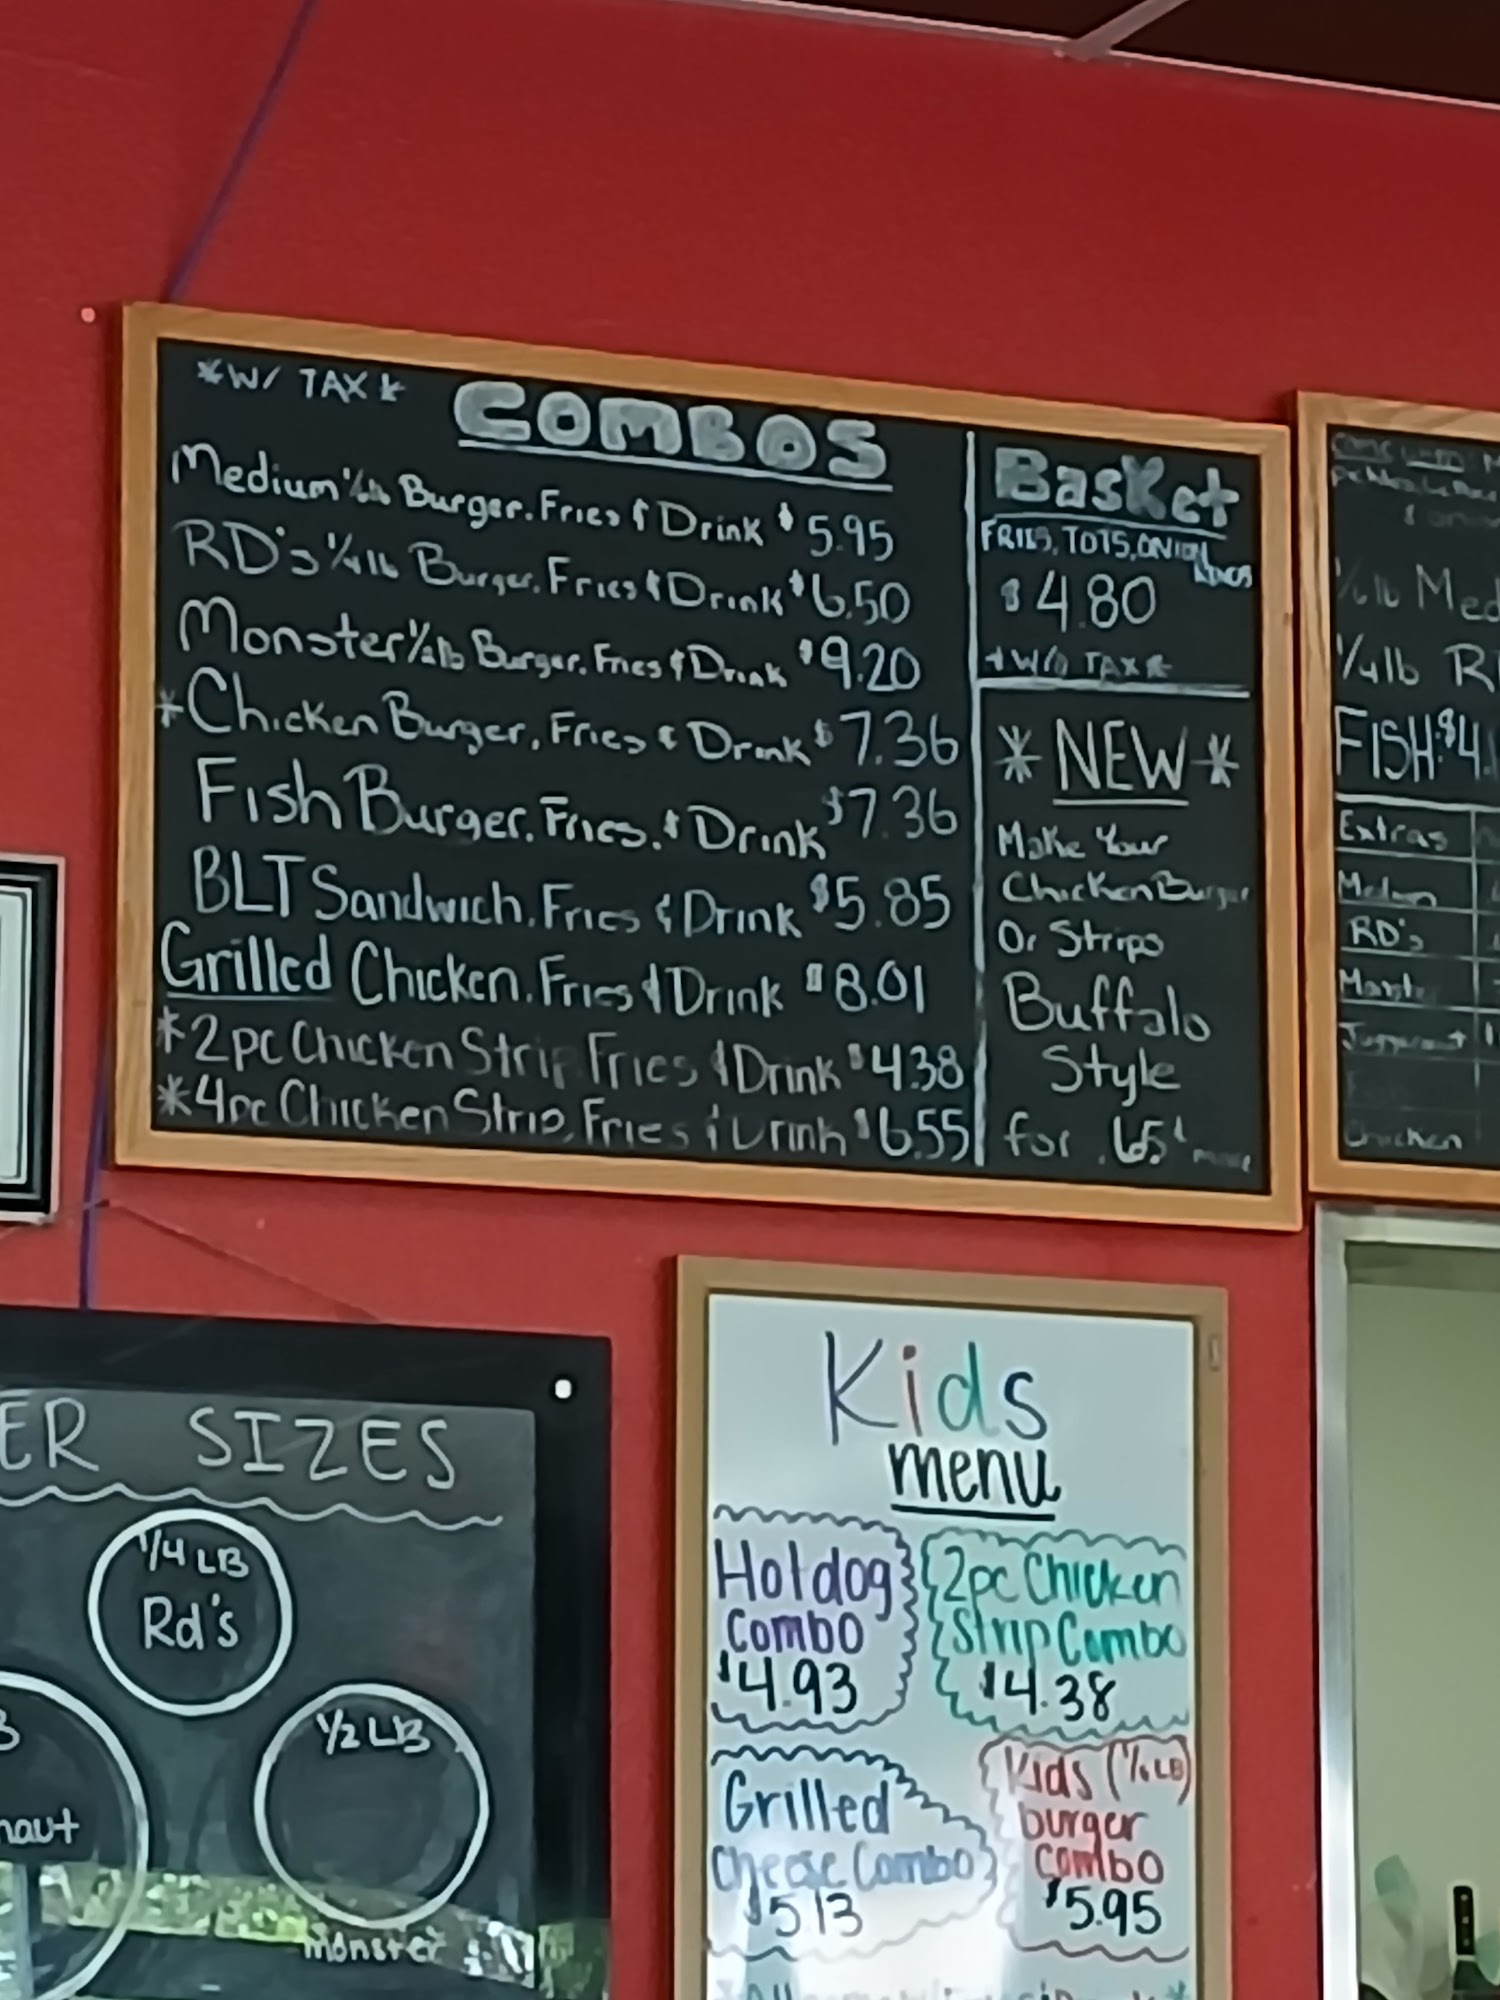 *W/ TAX*
COMBOS
Medium 1/6lb Burger. Fries & Drink $5.95
RD's 1/4lb Burger. Fries & Drink $6.50
Monster 1/2lb Burger. Fries & Drink $9.20
*Chicken Burger, Fries & Drink $7.36
Fish Burger. Fries. & Drink $7.36
BLT Sandwich. Fries & Drink $5.85
Grilled Chicken. Fries & Drink $8.01
*2pc Chicken Strip Fries & Drink $4.38
*4pc Chicken Strip, Fries & Drink $6.55
Basket
FRIES, TOTS, ONION
RINGS
$4.80
*W/O TAX*
*NEW*
Make Your
Chicken Burger
Or Strips
Buffalo
Style
for .65¢ more
1/6lb Med
1/4lb R
FISH: $4.
Extras
Medium
RD's
Monster
Juggernaut
Chicken
ER SIZES
1/4 LB
Rd's
1/2 LB
monster
naut
Kids
menu
Hotdog
Combo
$4.93
2pc Chicken
Strip Combo
$4.38
Grilled
Cheese Combo
$5.13
Kids (1/6 LB)
burger
combo
$5.95